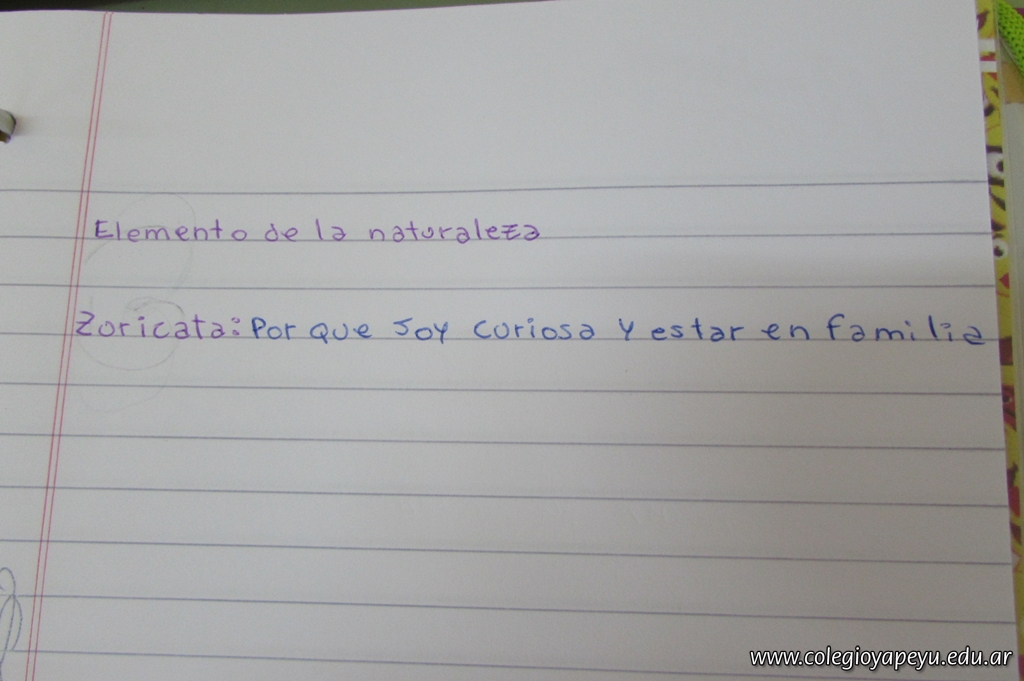 Elemento de la naturaleza
Zoricata: Por que soy curiosa y estar en familia
www.colegioyapeyu.edu.ar